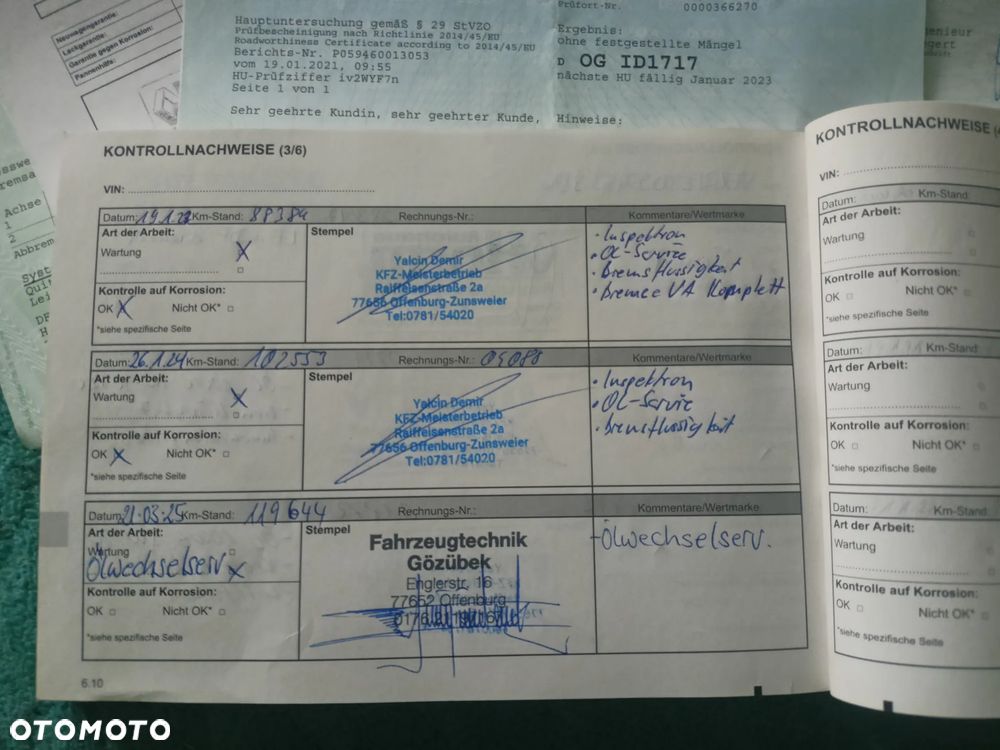 Neuwagengarantie:
Lackgarantie:
Garantie gegen Korrosion:
Pannenhilfe:
Hauptuntersuchung gemäß § 29 StVZO
Prüfbescheinigung nach Richtlinie 2014/45/EU
Roadworthiness Certificate according to 2014/45/EU
Berichts-Nr. P059460013053
vom 19.01.2021, 09:55
HU-Prüfziffer iv2WYF7n
Seite 1 von 1
Sehr geehrte Kundin, sehr geehrter Kunde,
Prüfort-Nr. 0000366270
Ergebnis:
ohne festgestellte Mängel
D OG ID1717
nächste HU fällig Januar 2023
Hinweise:
Achse
1
2
KONTROLLNACHWEISE (3/6)
VIN:
Datum: Km-Stand: 88384 Rechnungs-Nr.: Kommentare/Wertmarke
Art der Arbeit:
Wartung X
Kontrolle auf Korrosion:
OK X Nicht OK*
*siehe spezifische Seite
Stempel
Yalcin Demir
KFZ-Meisterbetrieb
Raiffeisenstraße 2a
77656 Offenburg-Zunsweier
Tel:0781/54020
• Inspektion
• Öl-Service
• Bremsflüssigkeit
• Bremse VA Komplett
Datum: 26.1.24 Km-Stand: 102553 Rechnungs-Nr.: 04088 Kommentare/Wertmarke
Art der Arbeit:
Wartung X
Kontrolle auf Korrosion:
OK X Nicht OK*
*siehe spezifische Seite
Stempel
Yalcin Demir
KFZ-Meisterbetrieb
Raiffeisenstraße 2a
77656 Offenburg-Zunsweier
Tel:0781/54020
• Inspektion
• Öl-Service
• Bremsflüssigkeit
Datum: 21.03.25 Km-Stand: 119644 Rechnungs-Nr.: Kommentare/Wertmarke
Art der Arbeit:
Wartung
Ölwechselserv X
Kontrolle auf Korrosion:
OK Nicht OK*
*siehe spezifische Seite
Stempel
Fahrzeugtechnik
Gözübek
Englerstr. 16
77652 Offenburg
-Ölwechselserv.
6.10
KONTROLLNACHWEISE (
VIN:
Datum: Km-Stand:
Art der Arbeit:
Wartung
Kontrolle auf Korrosion:
OK Nicht OK*
*siehe spezifische Seite
Datum: Km-Stand
Art der Arbeit:
Wartung
Kontrolle auf Korrosion:
OK Nicht OK*
*siehe spezifische Seite
Datum: Km-Stand:
Art der Arbeit:
Wartung
Kontrolle auf Korrosion:
OK Nicht OK*
*siehe spezifische Seite
OTOMOTO